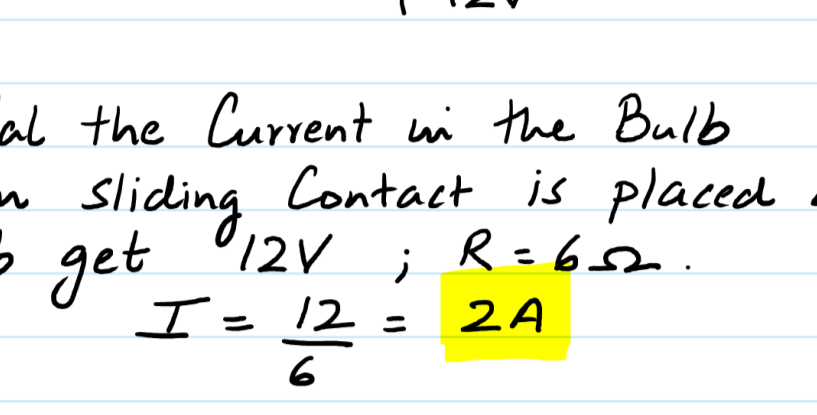 12V
al the Current in the Bulb
sliding Contact is placed
get 12V ; R = 6Ω .
I = 12/6 = 2A